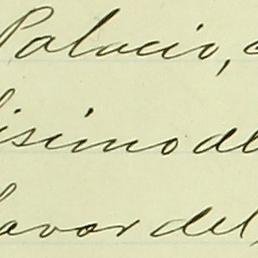 Palacio, c
isimo de
favor del